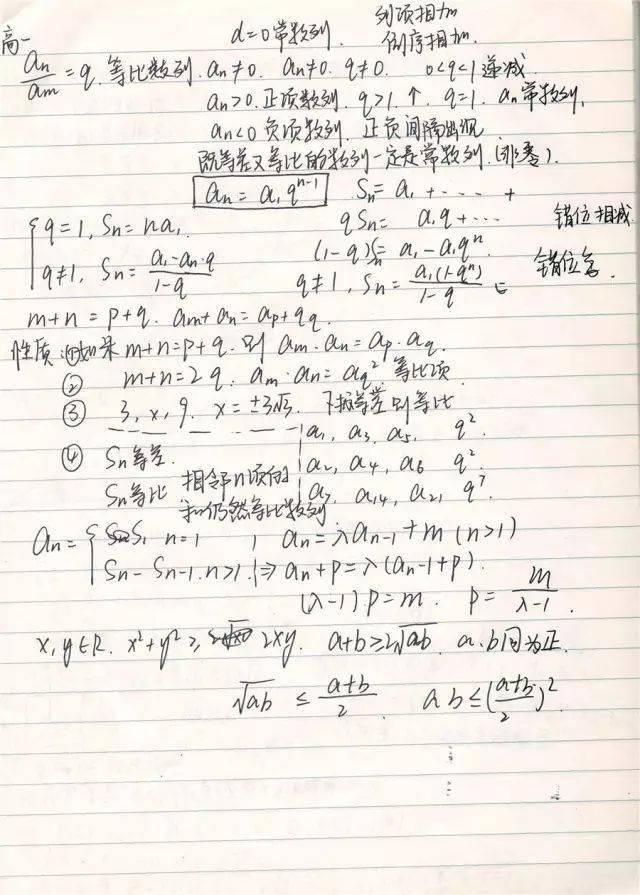 高一
d=0常数列. 列项相加
倒序相加.
an/am = q. 等比数列. an≠0. an≠0. q≠0. 0<q<1 递减
an>0. 正项数列. q>1. ↑. q=1. an常数列,
an<0 负项数列. 正负间隔出现
既等差又等比的数列一定是常数列.(非零).
an = a₁qⁿ⁻¹ Sn = a₁ + ---- +
{ q=1, Sn = na₁. qSn = a₁q + ... 错位相减
(1-q)Sn = a₁-a₁qⁿ.
q≠1, Sn = (a₁-an·q)/(1-q) q≠1, Sn = a₁(1-qⁿ)/(1-q) 错位
m+n = p+q. am+an = ap+qq.
性质:①如果m+n=p+q. 则 am·an = ap·aq.
② m+n=2q. am·an = aq² 等比项.
③ 3, x, 9. x = ±3√3. 下标等差则等比
a₁, a₃, a₅, q².
④ Sn等差. a₂, a₄, a₆ q².
Sn等比 相邻n项的和仍然等比数列 a₇, a₁₄, a₂₁ q⁷
an = { S₁ n=1 an = λan-1 + m (n>1)
Sn - Sn-1. n>1. ⇒ an+p = λ(an-1+p).
(λ-1)p = m. p = m/(λ-1).
x, y∈R. x²+y² ≥ 2xy. a+b≥2√ab. a.b同为正.
√ab ≤ (a+b)/2. ab≤((a+b)/2)².